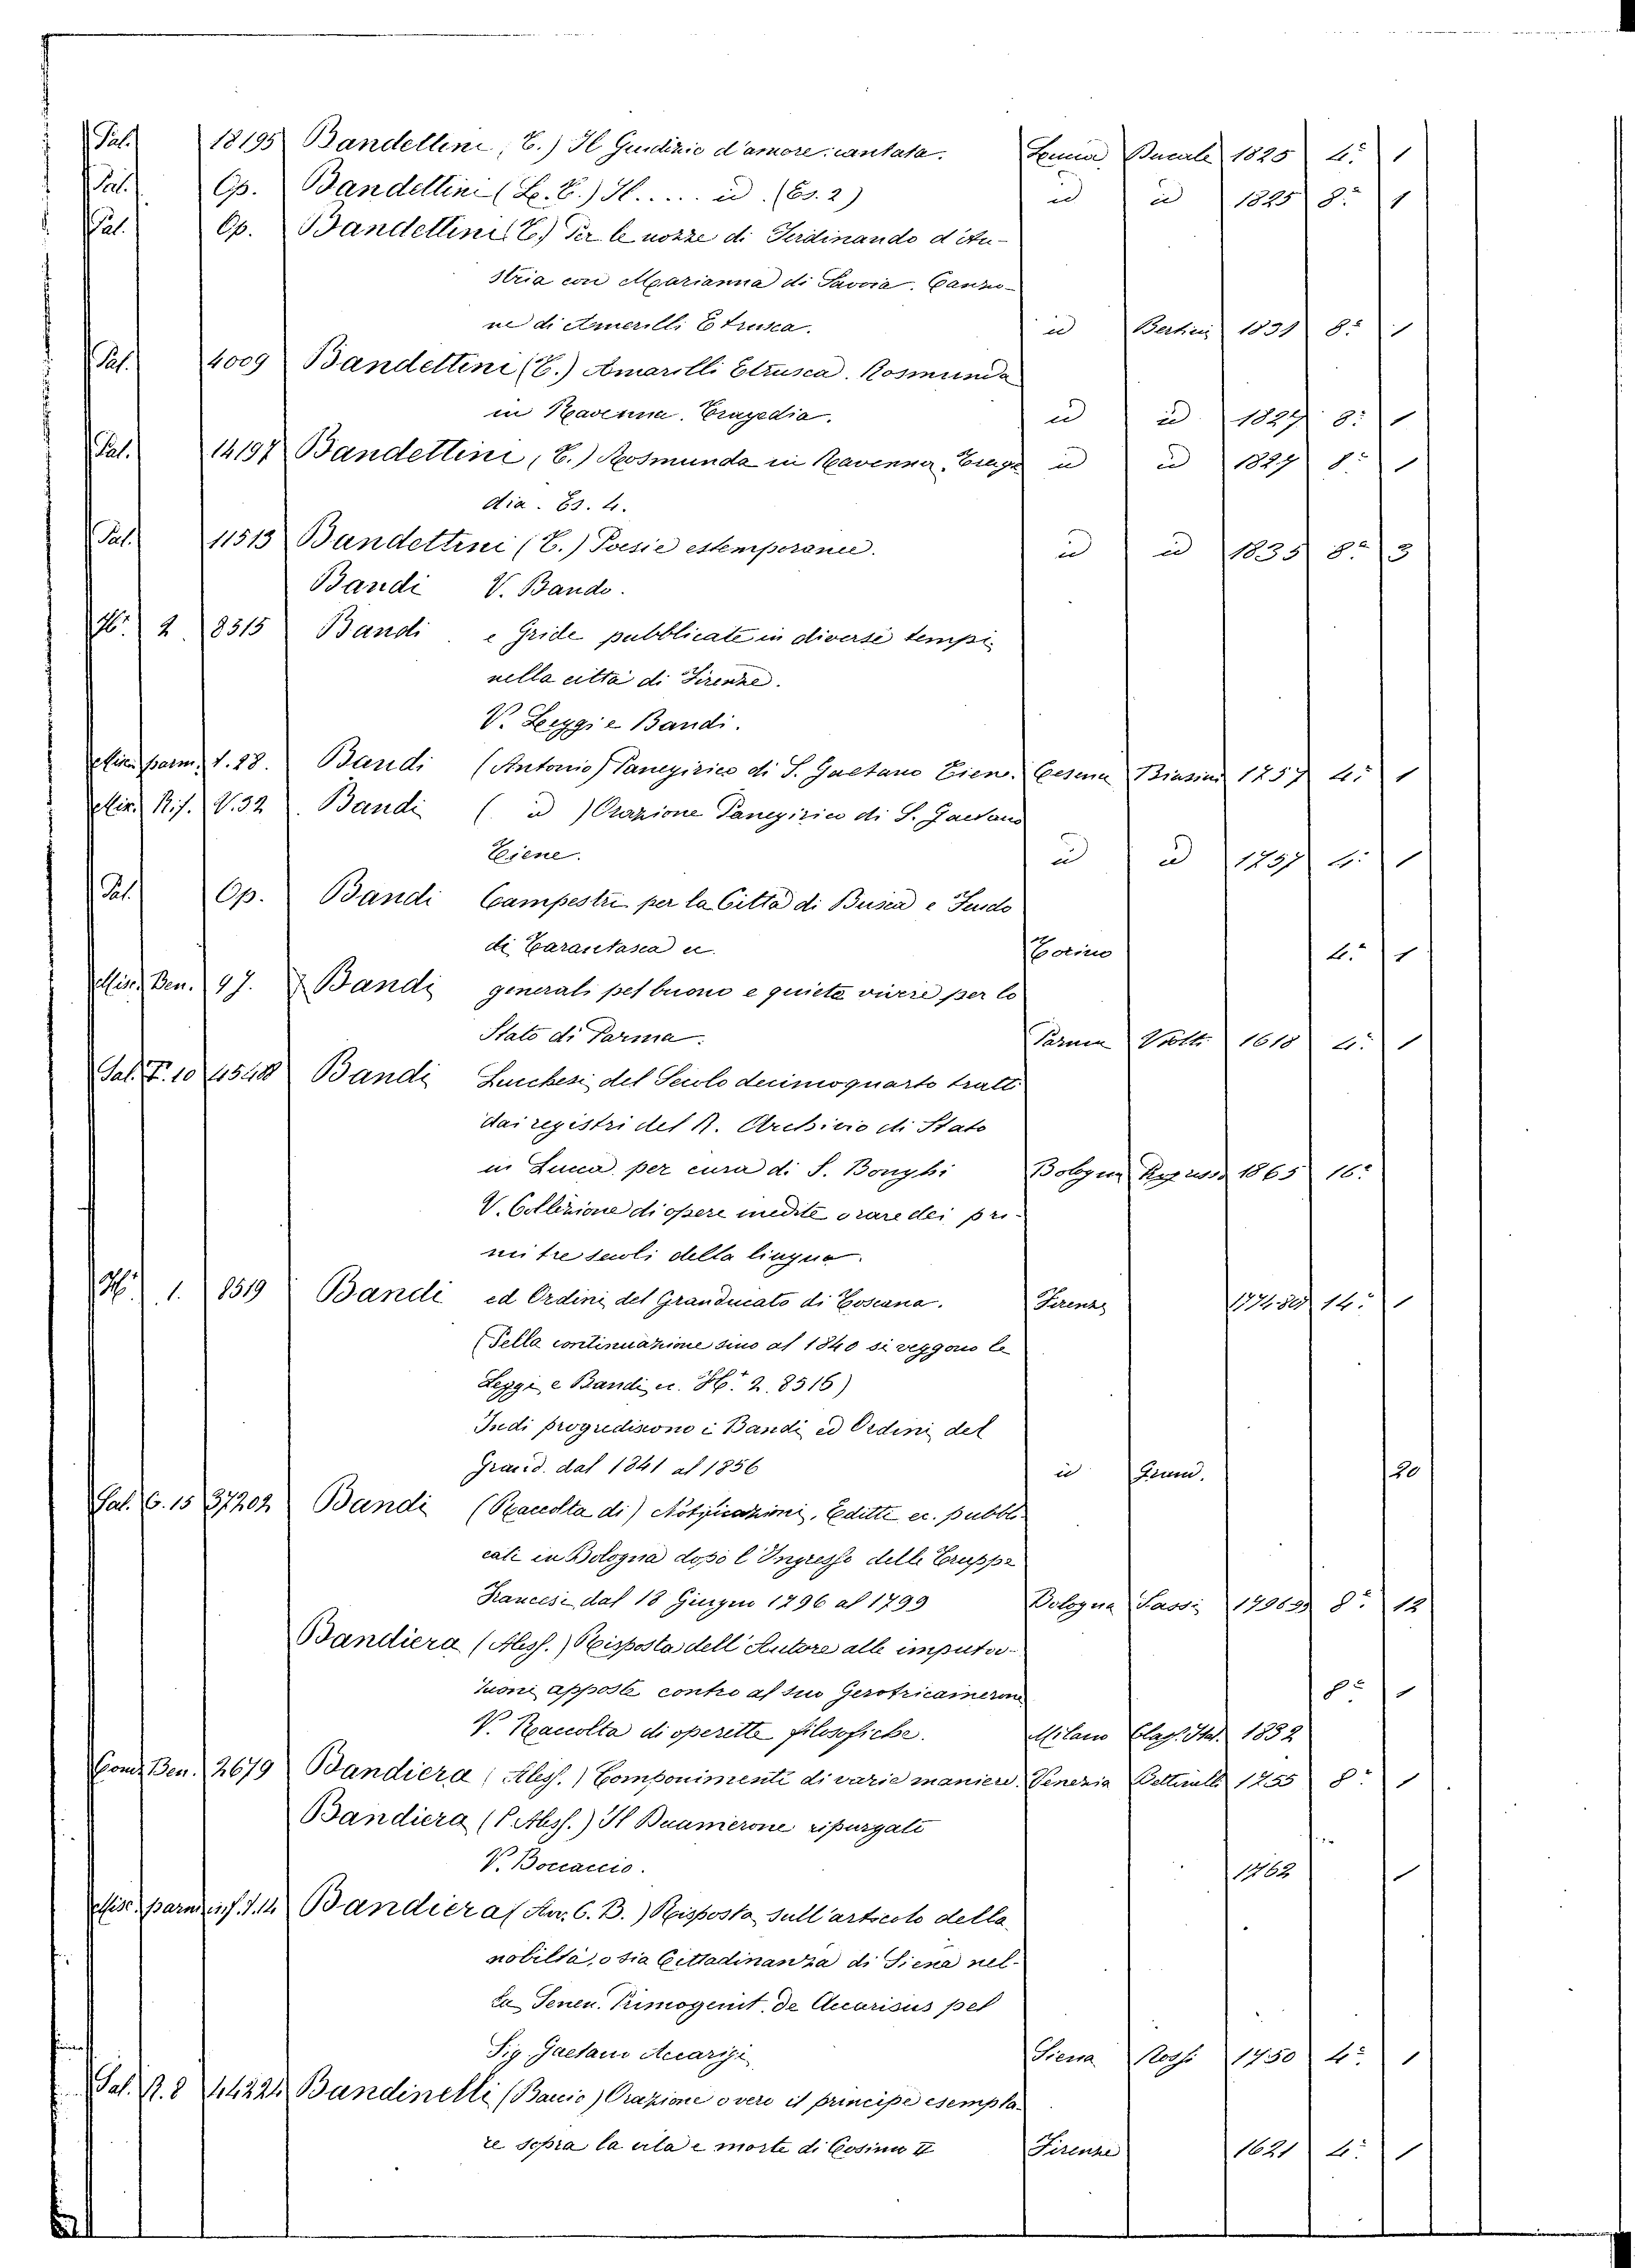 Pal. 18195 Bandettini (T.) Il Giudizio d'amore: cantata. Lucca Bacale 1825 4.° 1
Pal. Op. Bandettini (L. T.) Il..... id. (Es. 2) id id 1825 8.° 1
Pal. Op. Bandettini (T.) Per le nozze di Ferdinando d'Au-
stria con Marianna di Savoia. Canzo-
ne di Amarilli Etrusca. id Bertini 1831 8.° 1
Pal. 4009 Bandettini (T.) Amarilli Etrusca. Rosmunda
in Ravenna. Tragedia. id id 1827 8.° 1
Pal. 14197 Bandettini, (T.) Rosmunda in Ravenna. Trage id id 1827 8.° 1
dia. Es. 4.
Pal. 11513 Bandettini (T.) Poesie estemporanee. id id 1835 8.° 3
Bandi V. Bando.
H.° 2. 8315 Bandi e Gride pubblicate in diversi tempi
nella città di Firenze.
V. Leggi e Bandi.
Misc. parm. t. 28. Bandi (Antonio) Panegirico di S. Gaetano Tiene. Cesena Biasini 1757 4.° 1
Misc. Rif. V. 32. Bandi ( id ) Orazione Panegirica di S. Gaetano
Tiene. id id 1757 4.° 1
Pal. Op. Bandi Campestri per la Città di Busca e Feudo
di Tarantasca ec. Torino 4.° 1
Misc. Ben. 97. Bandi generali pel buono e quieto vivere per lo
Stato di Parma. Parma Viotti 1618 4.° 1
Sal. F. 10 4540 Bandi Lucchesi del Secolo decimoquarto tratti
dai registri del R. Archivio di Stato
in Lucca per cura di S. Bonghi Bologna 1865 16.°
V. Collezione di opere inedite o rare dei pri-
mi tre secoli della lingua.
H.° 1. 8519 Bandi ed Ordini del Granducato di Toscana. Firenze 14.° 1
(Della continuazione sino al 1840 si veggono le
Leggi e Bandi ec. H.° 2. 8516)
Indi progrediscono i Bandi ed Ordini del
Grand. dal 1841 al 1856 id Grand. 20
Sal. G. 15 37202 Bandi (Raccolta di) Notificazioni, Editti ec. pubbli-
cati in Bologna dopo l'Ingresso delle Truppe
Francesi dal 18 Giugno 1796 al 1799 Bologna Sassi 1796 99 8.° 12
Bandiera (Aless.) Risposta dell'Autore alle imputa-
zioni apposte contro al suo Gerotricamerone 8.° 1
V. Raccolta di operette filosofiche. Milano Class. Ital. 1832
Cond. Ben. 2679 Bandiera (Aless.) Componimenti di varie maniere. Venezia Bettinelli 1755 8.° 1
Bandiera (P. Aless.) Il Decamerone ripurgato
V. Boccaccio. 1762 1
Misc. parm. inf. t. 14 Bandiera (Av. G. B.) Risposta sull'articolo della
nobiltà, o sia Cittadinanza di Siena nel-
la Senen. Primogenit. de Accarisiis pel
Sig. Gaetano Accarigi Siena Rossi 1750 4.° 1
Sal. R. 8 44224 Bandinelli (Baccio) Orazione overo il principe esempla-
re sopra la vita e morte di Cosimo II Firenze 1621 4.° 1